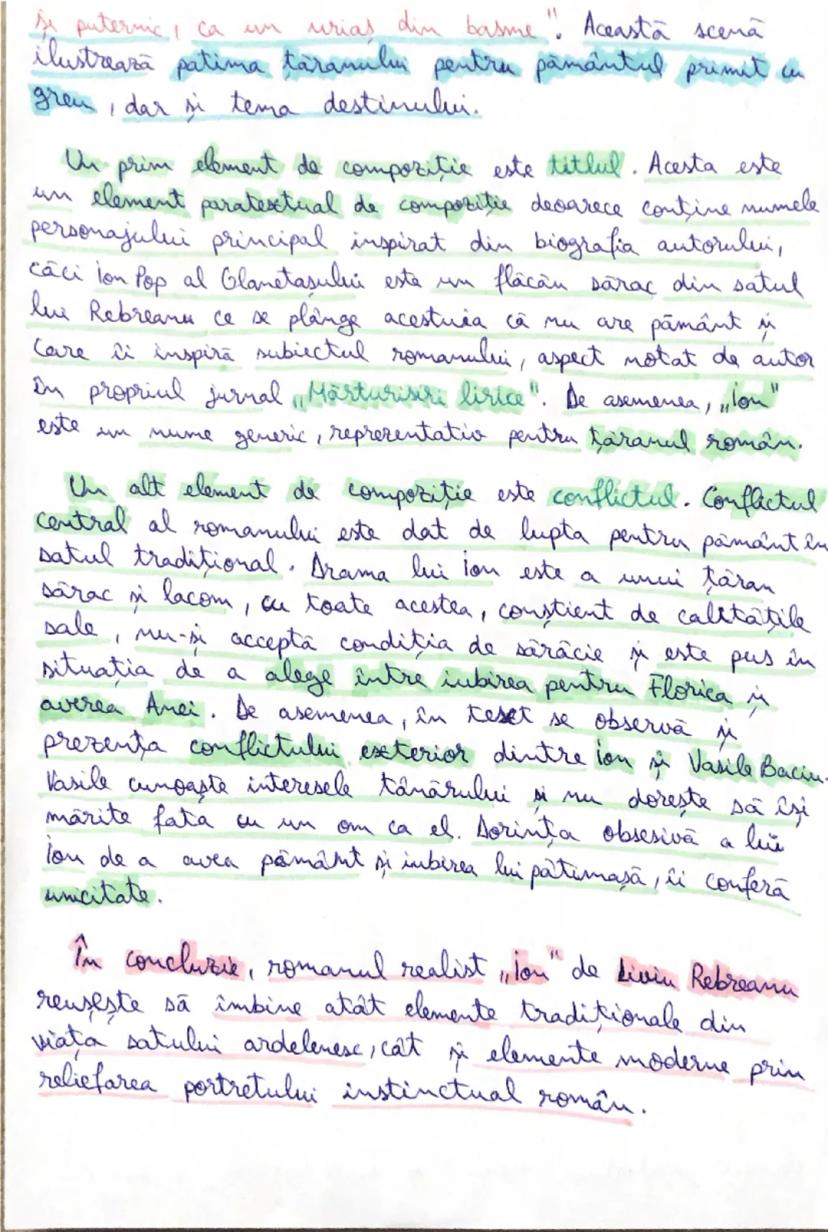 și puternic, ca un uriaș din basme". Această scenă
ilustrează patima țăranului pentru pământul primit cu
greu, dar și tema destinului.
Un prim element de compoziție este titlul. Acesta este
un element paratextual de compoziție deoarece conține numele
personajului principal inspirat din biografia autorului,
căci Ion Pop al Glanetașului este un flăcău sărac din satul
lui Rebreanu ce se plânge acestuia că nu are pământ și
care îi inspiră subiectul romanului, aspect notat de autor
în propriul jurnal „Mărturisiri lirice". De asemenea, „Ion"
este un nume generic, reprezentativ pentru țăranul român.
Un alt element de compoziție este conflictul. Conflictul
central al romanului este dat de lupta pentru pământ în
satul tradițional. Drama lui Ion este a unui țăran
sărac și lacom, cu toate acestea, conștient de calitățile
sale, nu-și acceptă condiția de sărăcie și este pus în
situația de a alege între iubirea pentru Florica și
averea Anei. De asemenea, în text se observă și
prezența conflictului exterior dintre Ion și Vasile Baciu.
Vasile cunoaște interesele tânărului și nu dorește să își
mărite fata cu un om ca el. Dorința obsesivă a lui
Ion de a avea pământ și iubirea lui pătimașă, îi conferă
unicitate.
În concluzie, romanul realist „Ion" de Liviu Rebreanu
reușește să îmbine atât elemente tradiționale din
viața satului ardelenesc, cât și elemente moderne prin
reliefarea portretului instinctual român.